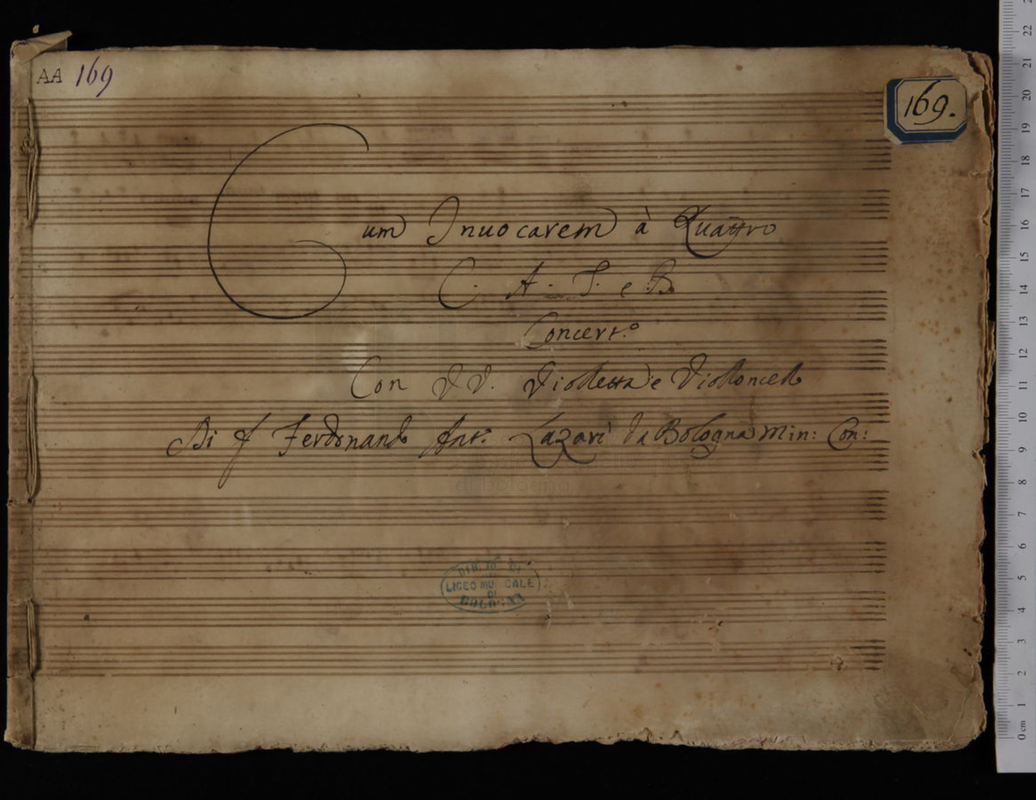 AA 169
169.
Cum Inuocarem à Quattro
C. A. T. e B.
Concert.o
Con VV. Violetta e Violloncello
Di f Ferdinando Ant.o Lazari da Bologna Min: Con:
LICEO MUSICALE
DI
BOLOGNA